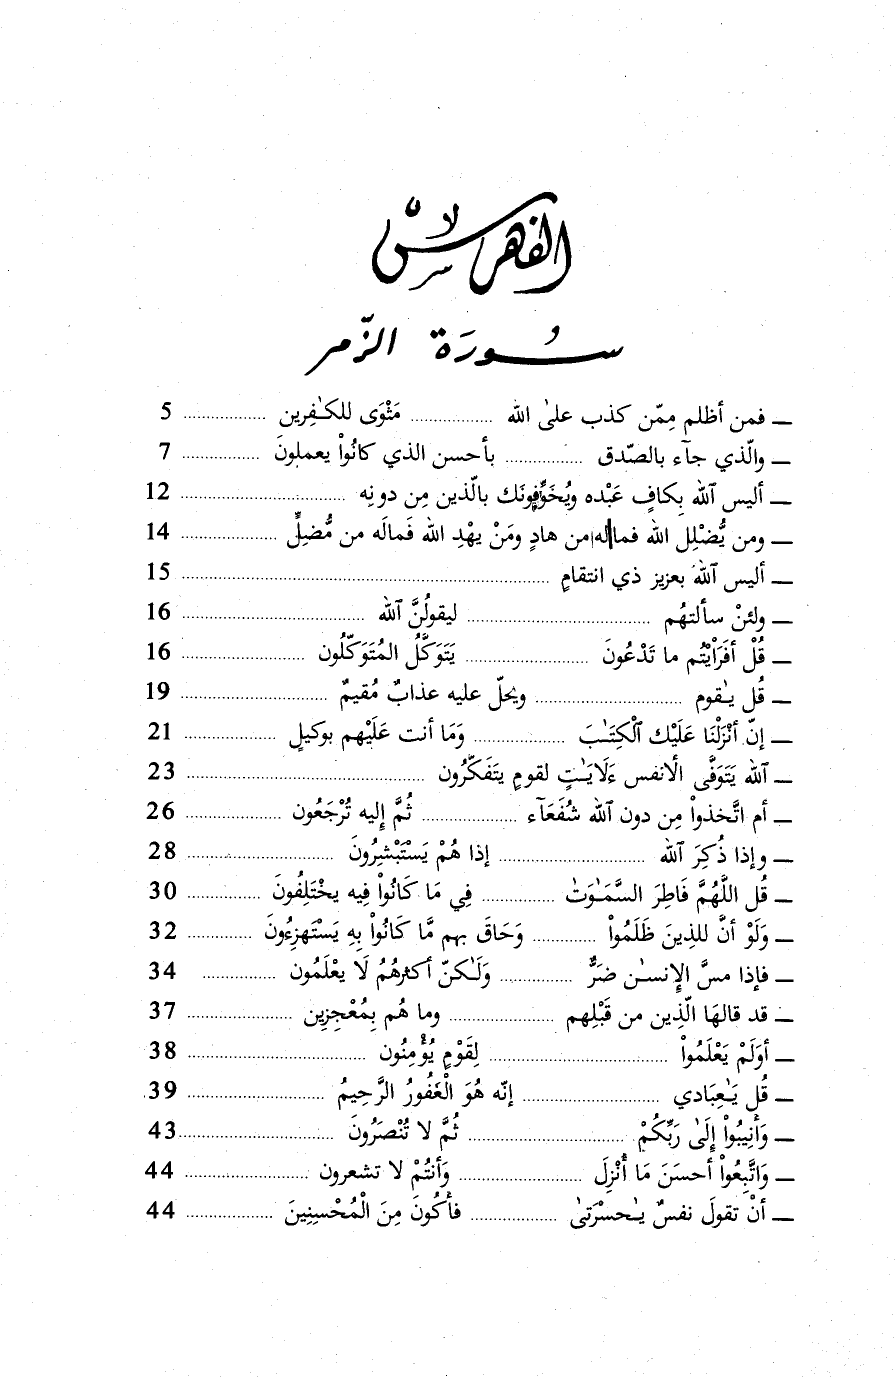 الفهرس
سُورَة الزّمر
ـ فمن أظلم مِمّن كذب علىٰ الله ................. مَثْوَى للكـٰفِرين ................. 5
ـ والّذي جآء بالصّدق ................. بأحسن الذي كانُواْ يعملونَ ................. 7
ـ أليس ٱلله بِكافٍ عَبْده ويُخَوِّفونَك بالّذين مِن دونِه ................. 12
ـ ومن يُّضْلِل الله فماله من هادٍ ومَنْ يهْدِ الله فَمالَه من مُّضِلٍّ ................. 14
ـ أليس ٱلله بعزيز ذي انتقامٍ ................. 15
ـ ولئنْ سألتهُم ................. ليقولُنَّ ٱلله ................. 16
ـ قُلْ أفَرَأيْتُم ما تَدْعُونَ ................. يَتَوَكَّلُ المُتَوَكّلُون ................. 16
ـ قُل يـٰقوم ................. ويحلّ عليه عذابٌ مُقيمٌ ................. 19
ـ إنّ أنْزَلْنَا عَلَيْك ٱلْكِتَـٰبَ ................. وَمَا أنت عَلَيْهم بوكيلٍ ................. 21
ـ ٱلله يَتَوَفَّى الانفس ءَلَايَـٰتٍ لقومٍ يتَفَكّرُون ................. 23
ـ أم اتَّخذواْ مِن دون ٱلله شُفَعَآء ................. ثُمَّ إليه تُرْجَعُون ................. 26
ـ وإذا ذُكِرَ ٱلله ................. إذا هُمْ يَسْتَبْشِرُونَ ................. 28
ـ قُل اللَّهُمَّ فَاطِرَ السَّمَـٰوَتٰ ................. فِي مَا كَانُواْ فِيه يخْتَلِفُونَ ................. 30
ـ وَلَوْ أنَّ للذِينَ ظَلَمُواْ ................. وَحَاقَ بهم مَّا كَانُواْ بِهِ يَسْتَهزِءُونَ ................. 32
ـ فإذا مسَّ الإنسـٰن ضَرٌّ ................. وَلَـٰكنّ أكثرهُمُ لَا يعْلَمُون ................. 34
ـ قد قالهَا الّذِين من قَبْلِهم ................. وما هُم بِمُعْجِزِين ................. 37
ـ أوَلَمْ يَعْلَمُواْ ................. لِقَوْمٍ يُؤْمِنُون ................. 38
ـ قُل يَـٰعِبَادي ................. إنّه هُوَ الْغَفُورُ الرَّحِيمُ ................. 39
ـ وَأنِيبُواْ إلَىٰ رَبِّكُمْ ................. ثُمَّ لا تُنْصَرُونَ ................. 43
ـ وَاتَّبِعُواْ أحسَنَ مَا أُنْزِلَ ................. وَأنتُمْ لا تشعرون ................. 44
ـ أنْ تقولَ نفسٌ يـٰحسْرَتىٰ ................. فأكُونَ مِنَ الْمُحْسِنِينَ ................. 44